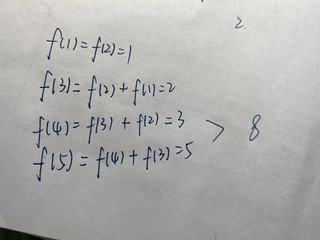 2.
f(1)=f(2)=1
f(3)=f(2)+f(1)=2
f(4)=f(3)+f(2)=3 > 8
f(5)=f(4)+f(3)=5